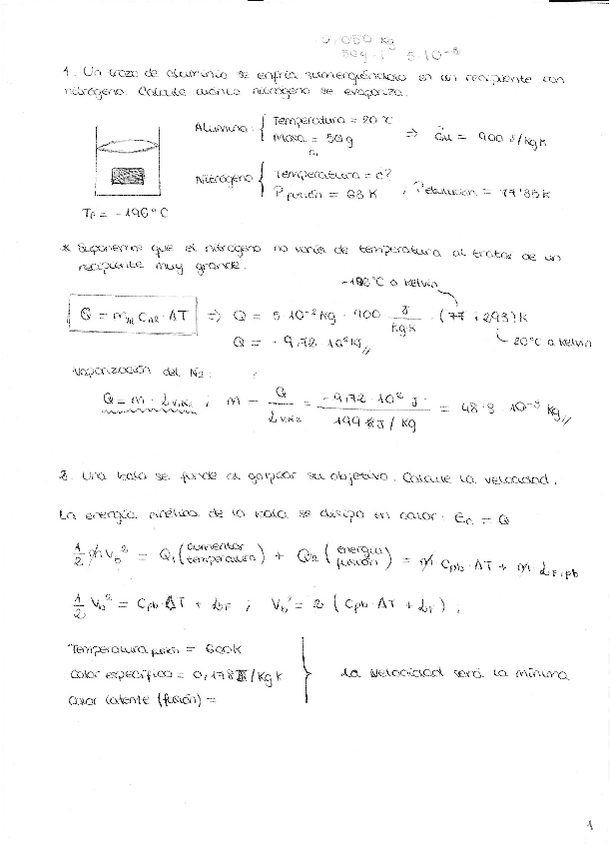 0,050 kg
50g · 1 5 10⁻³
1. Un trozo de aluminio se enfría sumergiéndolo en un recipiente con
nitrógeno. Calcule cuánto nitrógeno se evapora.
Aluminio: { Temperatura = 20 °C
Masa = 50g ⇒ = 900 J/kg K
Nitrógeno { Temperatura = c?
P fusión = 63 K , Pebullición = 77'35 K
Tf = -196°C
* Suponemos que el nitrógeno no varía de temperatura al tratar de un
recipiente muy grande.
-196°C a Kelvin
Q = m · c · ΔT ⇒ Q = 5 10⁻² kg · 900 J/kg·K · (77 - 293) K
20°C a Kelvin
Q = - 9,72 · 10² J //
Vaporización del N₂:
Q = m · Lv,N₂ ; m = Q / Lv,N₂ = -9,72 · 10² J / 199 J/kg = 48'8 10⁻³ kg //
2. Una bala se funde al golpear su objetivo. Calcule la velocidad.
La energía cinética de la bala se disipa en calor. Ec = Q
1/2 m Vb² = Q₁ (aumentar temperatura) + Q₂ (energía fusión) = m Cpb · ΔT + m · LF,pb
1/2 Vb² = Cpb · ΔT + LF ; Vb² = 2 ( Cpb · ΔT + LF ) ,
Temperatura fusión = 600K
Calor específico = 0,178 J/kg K
La velocidad será la mínima
Calor latente (fusión) =
1